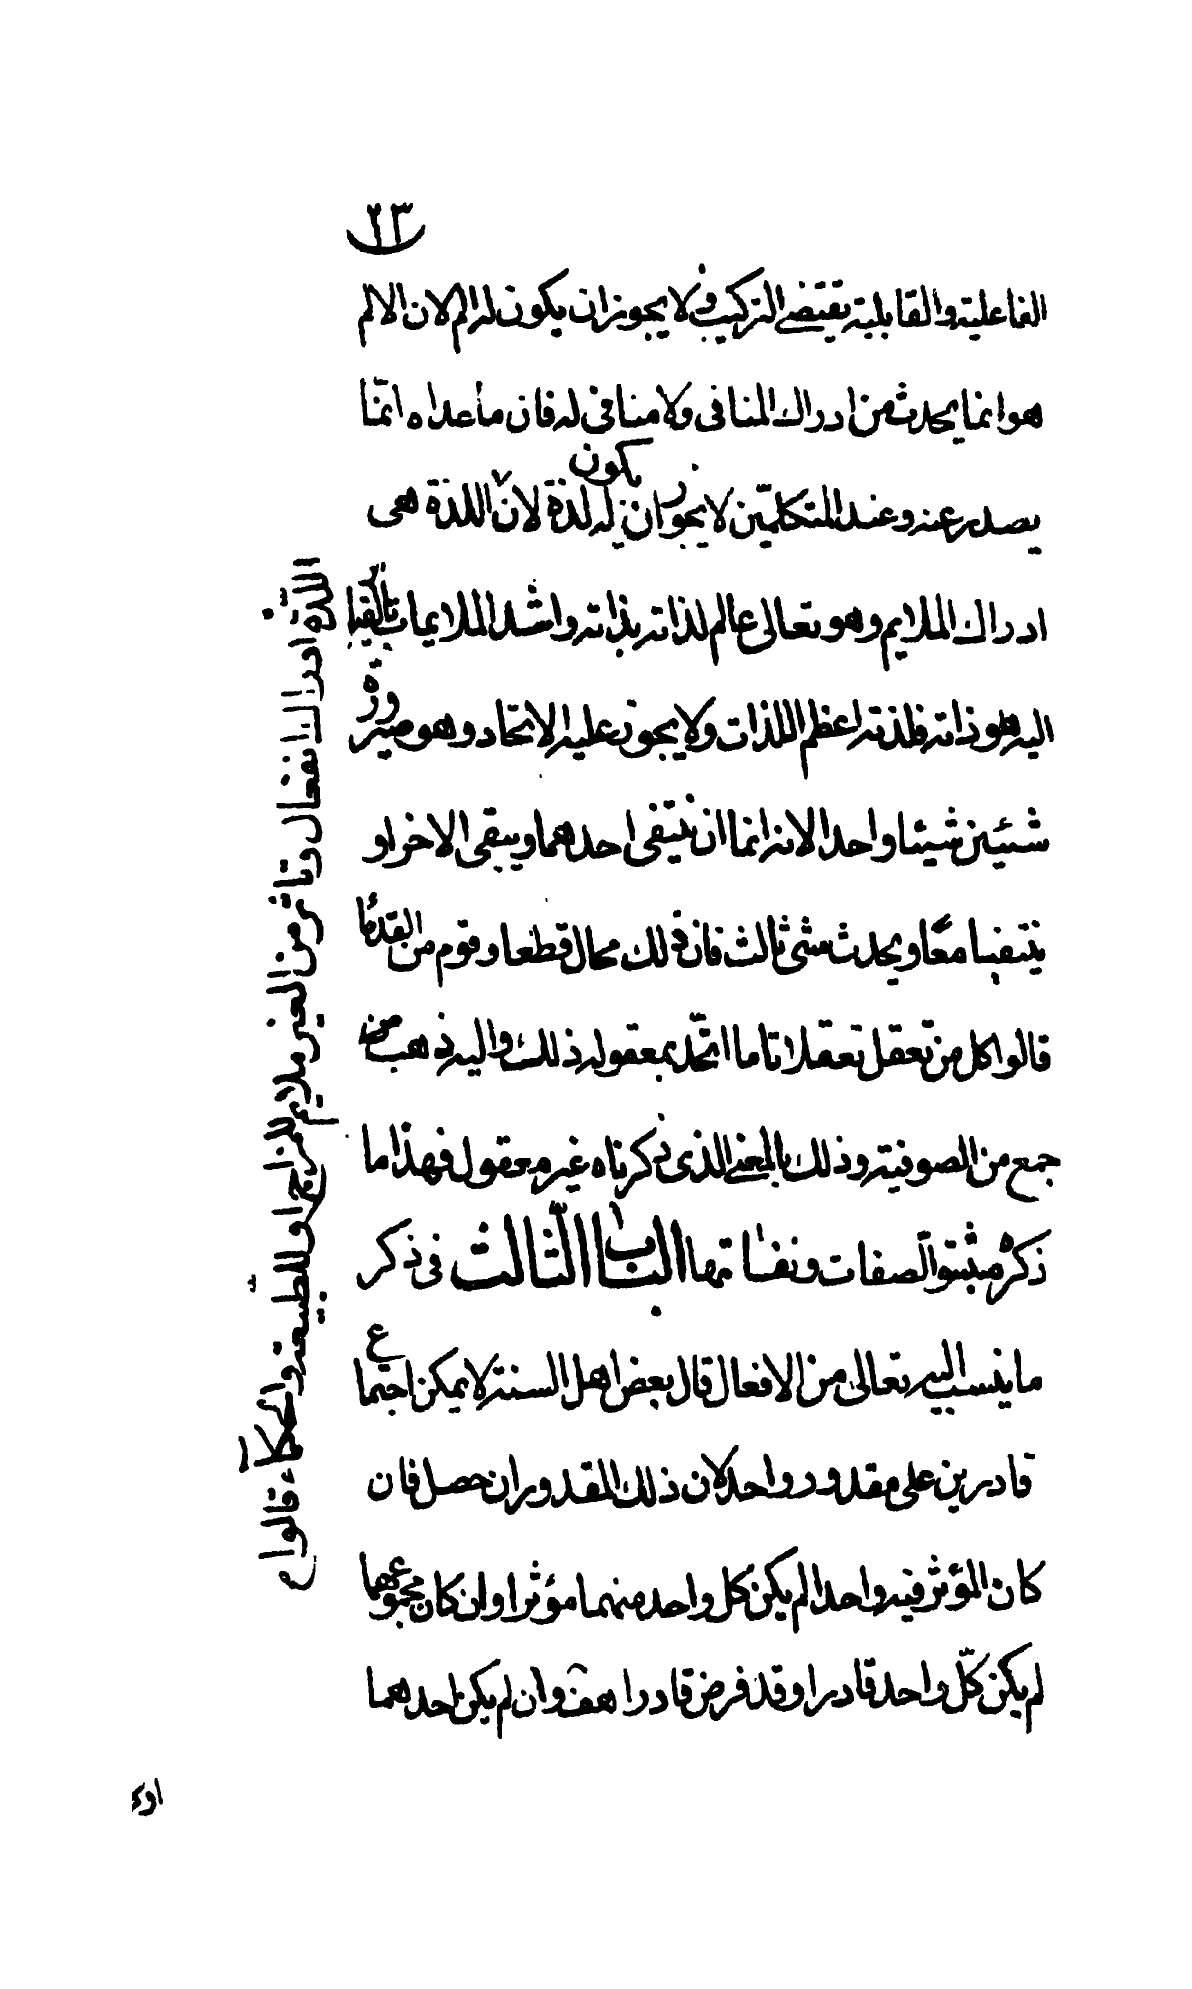 ٢٣
الفاعلية والقابلية يقتضى التركيب ولا يجوز ان يكون له الم لان الالم
هو انما يحدث من ادراك المنافى ولا منافى له فان ما عداه انّما
يصدر عنه وعند المتكلمّين لا يجوز ان يكون له لذة لانّ اللذة هى
ادراك الملايم وهو تعالى عالم لذاته بذاته واشد الملايمات بالقياس
اليه هو ذاته فلذته اعظم اللذات ولا يجوز عليه الاتحاد وهو صيرورة
شيئين شيئا واحدا لانه انما ان ينتفى احدهما ويبقى الاخر او
ينتفيا معًا ويحدث شئ ثالث فان ذلك محال قطعا وقوم من القدمٔا
قالوا كل من تعقل تعقلا تاما اتحّد بمعقوله ذلك واليه ذهب
جمع من الصوفية وذلك بالمعنى الذى ذكرناه غير معقول فهذا ما
ذكره مثبتوا الصفات ونفاتها الباب الثّالث فى ذكر
ما ينسب اليه تعالى من الافعال قال بعض اهل السنة لا يمكن اجتماع
قادرين على مقدور واحد لان ذلك المقدور ان حصل فان
كان المؤثر فيه واحدا لم يكن كل واحد منهما مؤثرا وان كان مجموعهما
لم يكن كلّ واحد قادرا وقد فرض قادرا هف وان لم يكن احدهما
اللّذة ادراك انفعال وتاثر من الغير ملايم للمزاج او للطّبيعة والحكمآء قالوا م